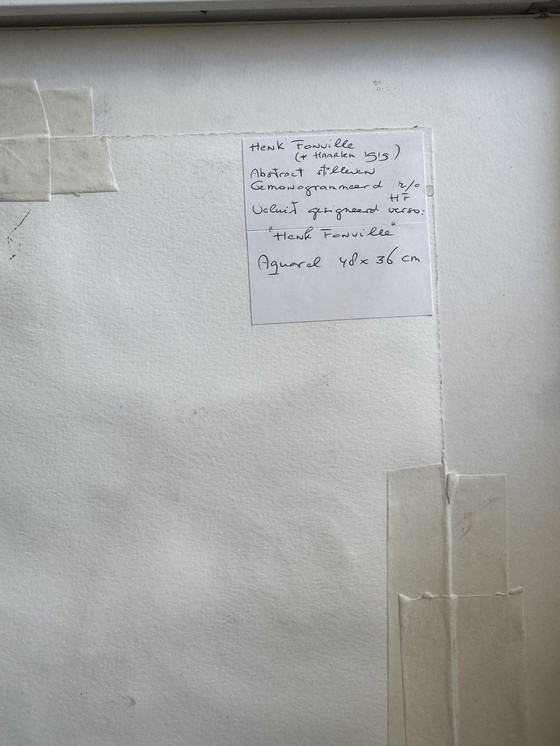 Henk Fonville
(+ HAARLEM 1919)
Abstract stilleven
Gemonogrammeerd r/o
HF
Voluit gesigneerd verso:
"Henk Fonville"
Aquarel 48 x 36 cm